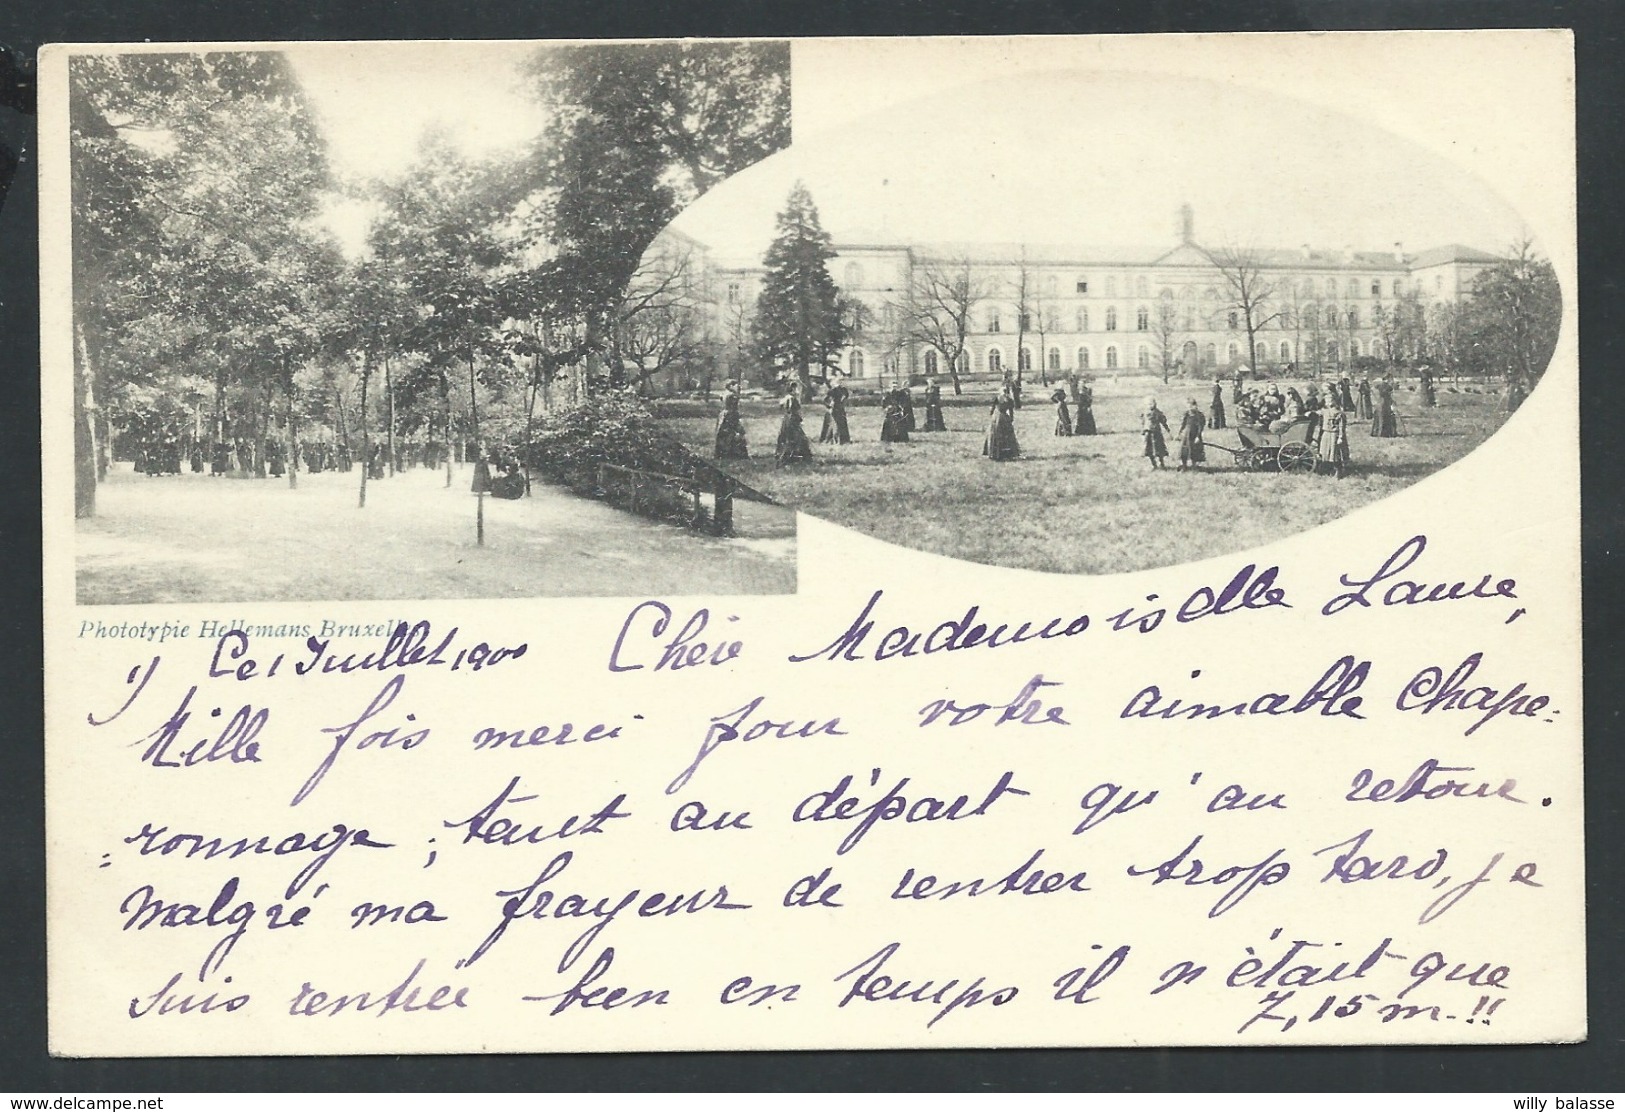 Phototypie Hellemans Bruxelles
1) Ce 1 Juillet 1900 Chère Mademoiselle Laure,
Mille fois merci pour votre aimable Chape-
-ronnage, tant au départ qu'au retour.
Malgré ma frayeur de rentrer trop tard, je
suis rentrée bien en temps il n'était que
7,15 m.!!
delcampe.net
willy balasse